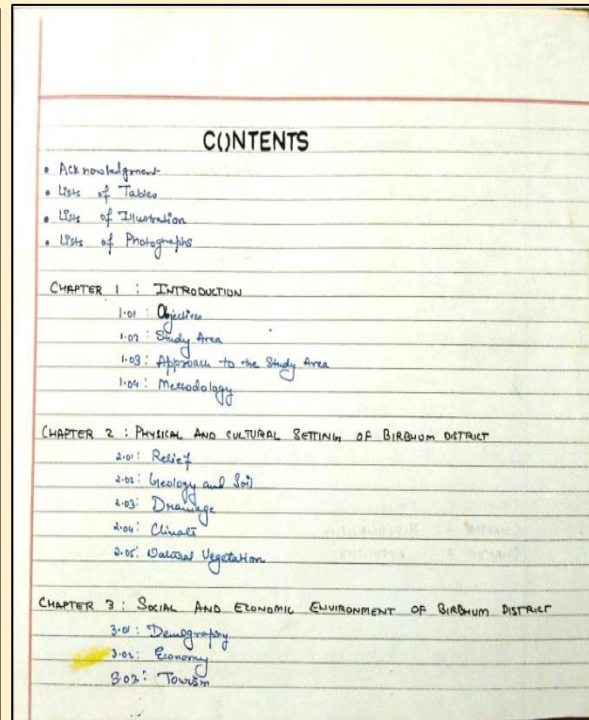 CONTENTS
• Acknowledgment
• Lists of Tables
• Lists of Illustration
• Lists of Photographs
CHAPTER 1 : INTRODUCTION
1.01 : Objectives
1.02 : Study Area
1.03 : Approach to the Study Area
1.04 : Metodology
CHAPTER 2 : PHYSICAL AND CULTURAL SETTING OF BIRBHUM DISTRICT
2.01 : Relief
2.02 : Geology and Soil
2.03 : Drainage
2.04 : Climate
2.05 : Natural Vegetation
CHAPTER 3 : SOCIAL AND ECONOMIC ENVIRONMENT OF BIRBHUM DISTRICT
3.01 : Demography
3.02 : Economy
3.03 : Tourism